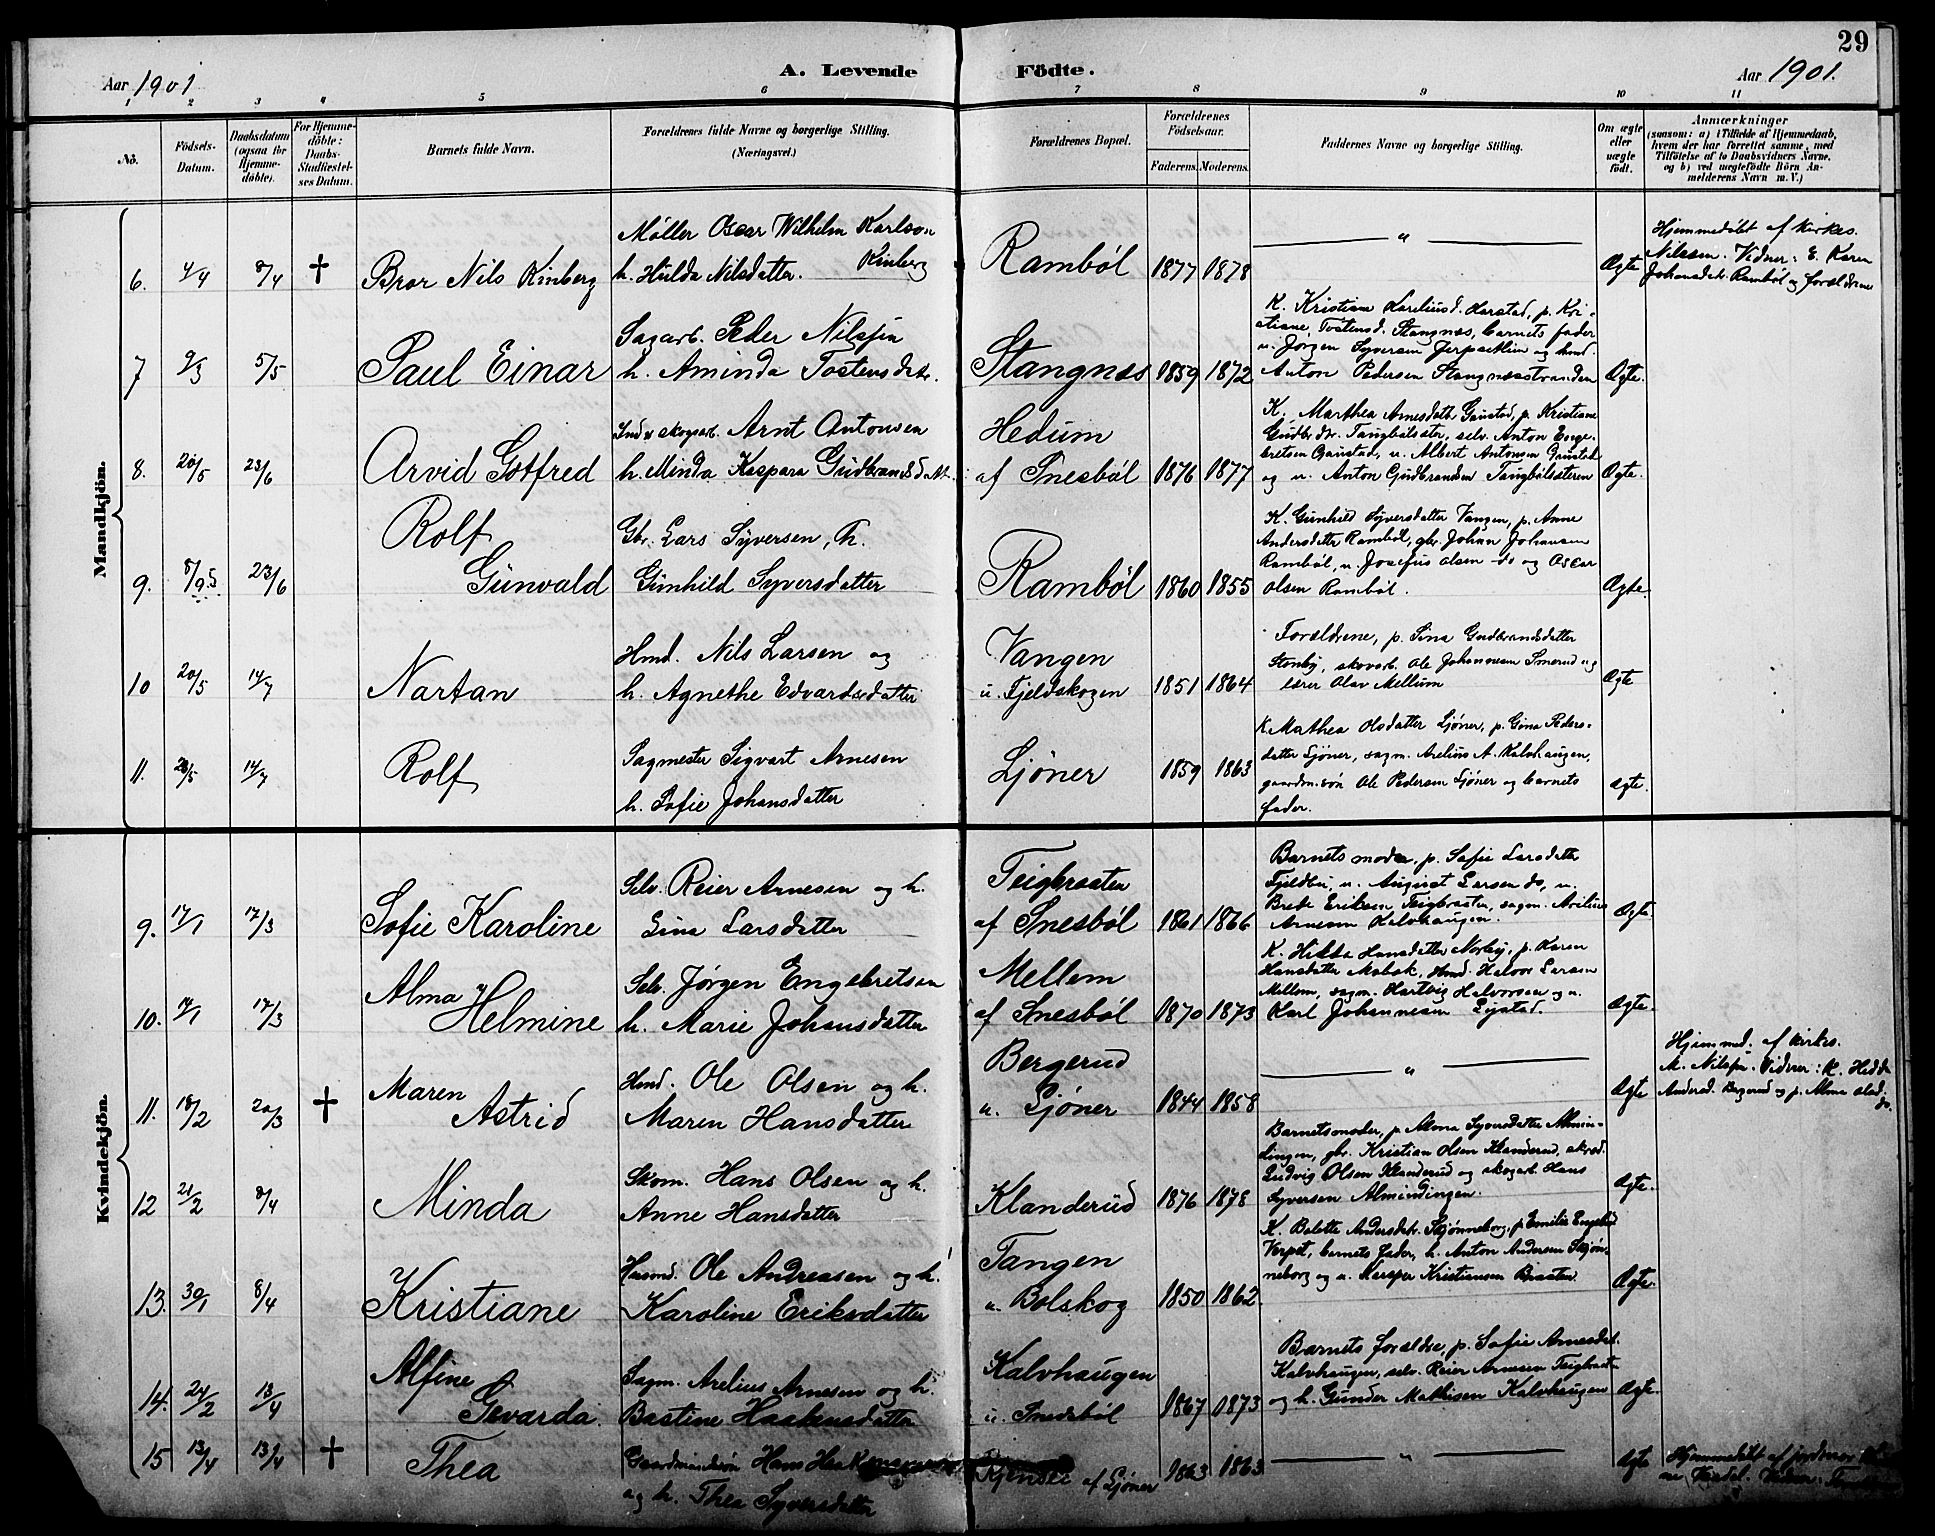 29
Aar 1901
A. Levende Födte.
Aar 1901.
1 2 3 4 5 6 7 8 9 10 11
No.
Födsels-Datum.
Daabsdatum (ogsaa for Hjemme-döbte).
For Hjemme-döbte: Daabs-Stadfæstel-ses Datum.
Barnets fulde Navn.
Forældrenes fulde Navne og borgerlige Stilling. (Næringsvei.)
Forældrenes Bopæl.
Forældrenes Födselsaar.
Faderens. Moderens.
Faddernes Navne og borgerlige Stilling.
Om ægte eller uægte födt.
Anmærkninger
(saasom: a) i Tilfælde af Hjemmedaab, hvem der har forrettet samme, med Tilföielse af to Daabsvidners Navne, og b) ved uægtefödte Börn An-melderens Navn m. V.)
Mandkjön.
6. 4/4 8/4 † Bror Nils Kinberg
Møller Oscar Wilhelm Karlson Kinberg
h. Hulda Nilsdatter.
Rambøl 1877 1878 — " — Ægte
Hjemmedøbt af kirkes.
Nilssen. Vidner: E. Karen
Johansdtr. Rambøl og forældrene
7 9/3 5/5 Paul Einar
Sagarb. Peder Nilssen
h. Aminda Tostensdtr.
Stangnæs 1859 1872
K. Kristiane Kareliusd. Harstad, p. Kri-
stiane Tostensd. Stangnæs, barnets fader
u. Jørgen Syversen og hmd.
Anton Pedersen Stangnæsstranden Ægte.
8. 20/5 23/6 Arvid Gotfred
Ind. skogarb. Arnt Antonsen
h. Minda Kaspara Gudbrandsdatt.
Hedum
af Snesbøl 1876 1877
K. Marthea Arnesdatter Gaustad, p. Kristiane
Gudbrdtr. Taugbølsæter, selv. Anton Enge-
bretsen Gaustad, u. Albert Antonsen Gaustad
og u. Anton Gudbrandsen Taugbølsæteren Ægte.
9. 8/5 23/6 Rolf
Gunvald
Gbr. Lars Syversen, h.
Gunhild Syversdatter
Rambøl 1860 1855
K. Gunhild Syversdatter Vangen, p. Anne
Andersdatter Rambøl, gbr. Johan Johansen
Rambøl, u. Josefus Olsen do og Oscar
Olsen Rambøl. Ægte.
10 20/5 14/7 Nartan
Hmd. Nils Larsen og
h. Agnethe Edvardsdatter
Vangen
u. Fjeldskogen 1851 1864
Forældrene, p. Sina Gudbrandsdatter
Stenby, skovarb. Ole Johannesen Smerud og
lærer Olav Mellum Ægte
11. 28/5 14/7 Rolf
Sagmester Sigvart Arnesen
h. Sofie Johansdatter
Ljøner 1859 1863
K. Mathea Olsdatter Ljøner, p. Gina Peders-
datter Ljøner, sagm. Arelius A. Kalvhaugen,
gaardm.søn Ole Pedersen Ljøner og barnets
fader. Ægte.
Kvindekjön.
9. 17/1 17/3 Sofie Karoline
Selv. Reier Arnesen og h.
Lina Larsdatter
Teigbraaten
af Snesbøl 1861 1866
Barnets moder, p. Sofie Larsdatter
Fjeldbu, u. August Larsen do, u.
Brede Eriksen Teigbraaten, sagm. Arelius
Arnesen Kalvhaugen. Ægte.
10. 17/1 17/3 Alma
Helmine
Selv. Jørgen Engebretsen
h. Marie Johansdatter
Mellem
af Snesbøl 1870 1873
K. Hilda Hansdatter Norby, p. Karen
Hansdatter Mobæk, Hmd. Halvor Larsen
Mellem, sagm. Hartvig Halvorsen og u.
Karl Johannesen Lystad. Ægte.
11. 18/2 20/3 † Maren
Astrid
Hmd. Ole Olsen og h.
Maren Hansdatter
Bergerud
u. Ljøner 1844 1858 — " — Ægte
Hjemmed. af kirkes.
M. Nilssen. Vidner: K. Hedda
Andersd. Bergerud og p. Alma Olsd.
do.
12 21/2 8/4 Minda
Skom. Hans Olsen og h.
Anne Hansdatter
Klanderud 1876 1878
Barnets moder, p. Alma Syversdatter Almin-
dingen, gbr. Kristian Olsen Klanderud, skræd.
Ludvig Olsen Klanderud og skogarb. Hans
Syversen Almindingen. Ægte.
13. 30/1 8/4 Kristiane
Husmd. Ole Andreasen og h.
Karoline Eriksdatter
Tangen
u. Bolskog 1850 1862
K. Bolette Andersdtr. Skjønneborg, p. Emilie
Verpet, barnets fader, h. Anton Andersen Skjøn-
neborg og u. Kasper Kristiansen Braaten. Ægte.
14. 24/2 13/4 Alfine
Gevarda.
Sagm. Arelius Arnesen og h.
Bastine Haakensdatter
Kalvhaugen
u. Snesbøl 1867 1873
Barnets forældre, p. Sofie Arnesdat.
Kalvhaugen, selv. Reier Arnesen Teigbraat
og h. Gunder Mathisen Kalvhaugen Ægte.
15 13/4 13/4 † Thea
Gaardmandsøn Hans
og h. Thea Syversdatter
af Ljøner 1863 1863 — " — Ægte
Hjemmedøbt af jordmor